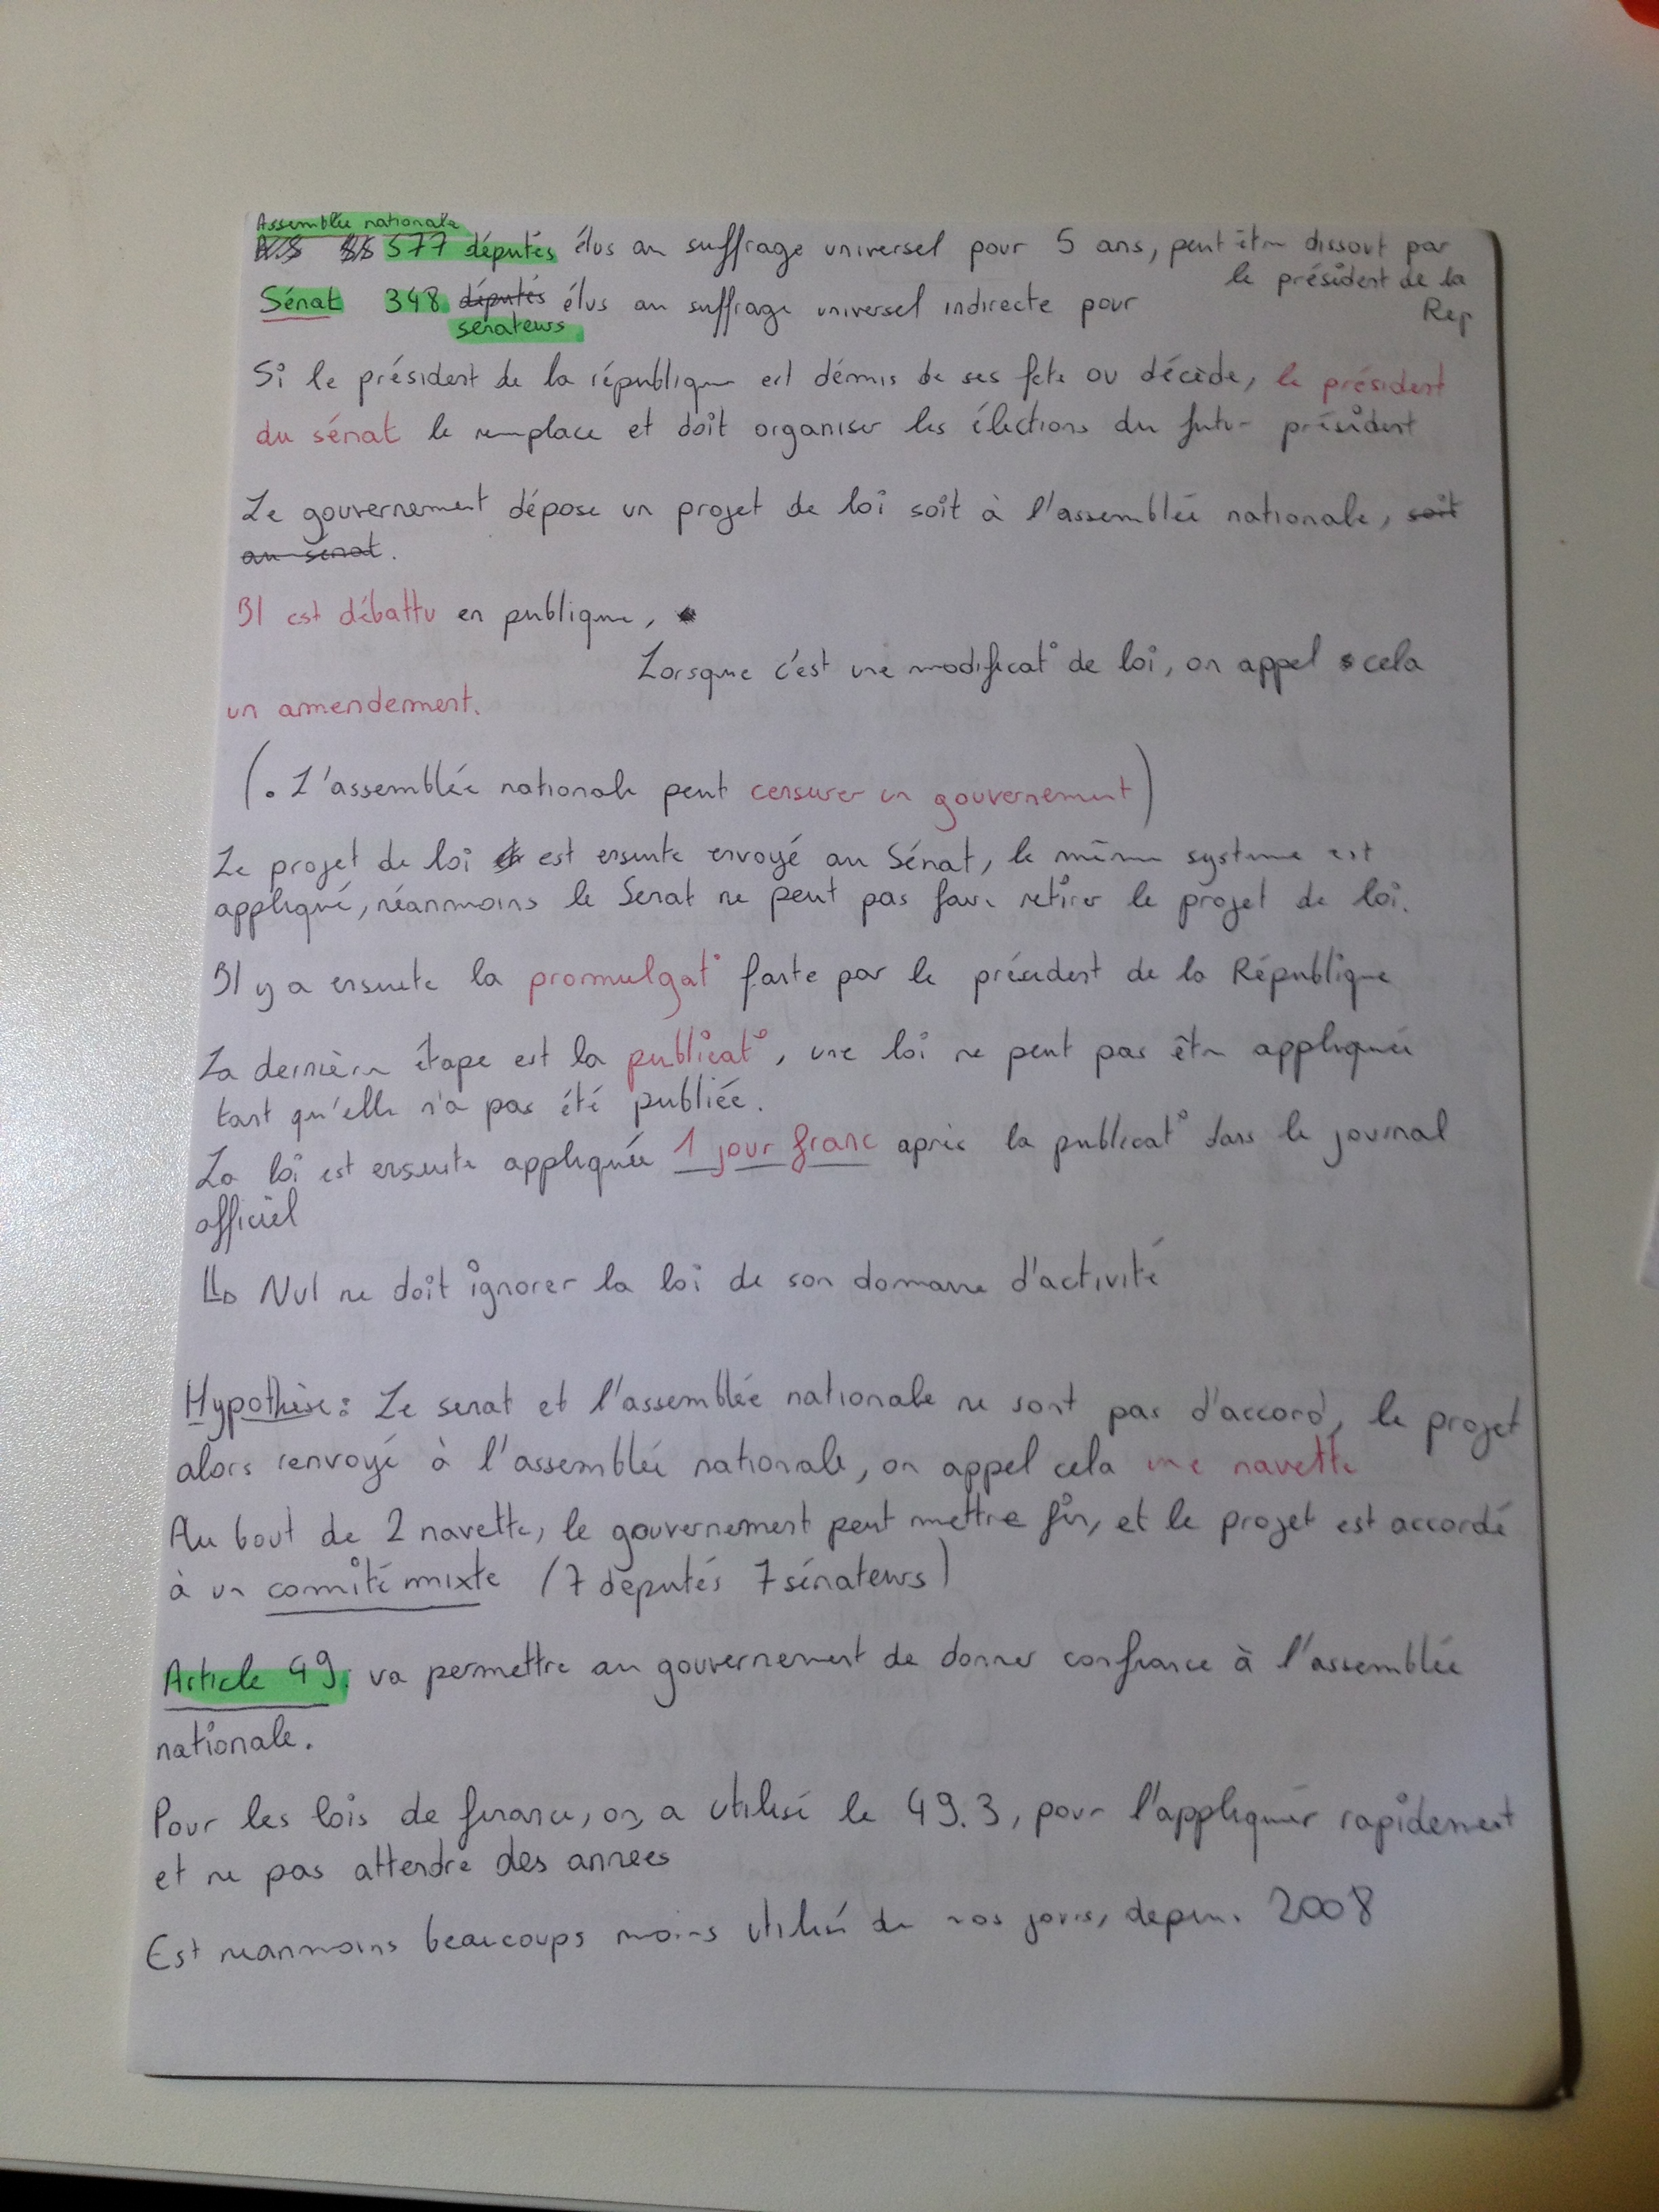 Assemblée nationale
577 députés élus au suffrage universel pour 5 ans, peut être dissout par
le président de la
Rep
Sénat 348 députés élus au suffrage universel indirecte pour
sénateurs
Si le président de la république est démis de ses fcts ou décède, le président
du sénat le remplace et doit organiser les élections du futur président
Le gouvernement dépose un projet de loi soit à l'assemblée nationale, soit
au sénat.
Il est débattu en publique,
Lorsque c'est une modificat° de loi, on appel cela
un amendement.
(. L'assemblée nationale peut censurer un gouvernement)
Le projet de loi est ensuite envoyé au Sénat, le même système est
appliqué, néanmoins le Senat ne peut pas faire retirer le projet de loi.
Il y a ensuite la promulgat° faite par le président de la République
La dernière étape est la publicat°, une loi ne peut pas être appliquée
tant qu'elle n'a pas été publiée.
La loi est ensuite appliquée 1 jour franc après la publicat° dans le journal
officiel
↳ Nul ne doit ignorer la loi de son domaine d'activité
Hypothèse : Le senat et l'assemblée nationale ne sont pas d'accord, le projet
alors renvoyé à l'assemblée nationale, on appel cela une navette
Au bout de 2 navette, le gouvernement peut mettre fin, et le projet est accordé
à un comité mixte (7 députés 7 sénateurs)
Article 49 : va permettre au gouvernement de donner confiance à l'assemblée
nationale.
Pour les lois de finance, on a utilisé le 49.3, pour l'appliquer rapidement
et ne pas attendre des annees
Est neanmoins beaucoups moins utilisé de nos jours, depuis 2008